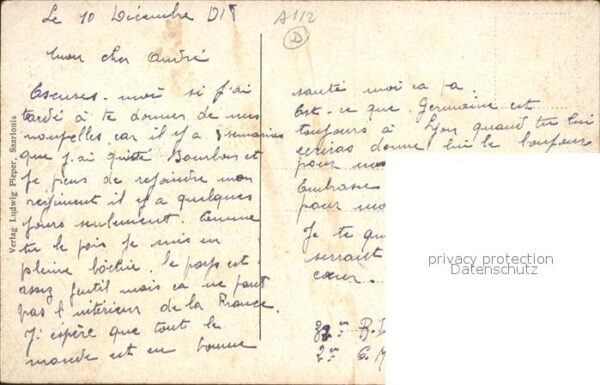 Le 10 Décembre 1918
A112
D
Mon cher André
Excuses-moi si j'ai
tardé à te donner de mes
nouvelles car il y a 3 semaines
que j'ai quitté Bourbon et
je viens de rejoindre mon
régiment il y a quelques
jours seulement. Comme
tu le vois je suis en
pleine bochie. le pays est
assez gentil mais ca ne vaut
pas l'intérieur de la France.
J'espère que tout le
monde est en bonne
santé moi ca va.
Est-ce que Germaine est
toujours à Lyon quand tu lui
ecriras donne lui le bonjour
pour
Embrasse
pour
Je te
serrant
cœur.
32
2
Verlag Ludwig Pieper, Saarlouis
privacy protection
Datenschutz